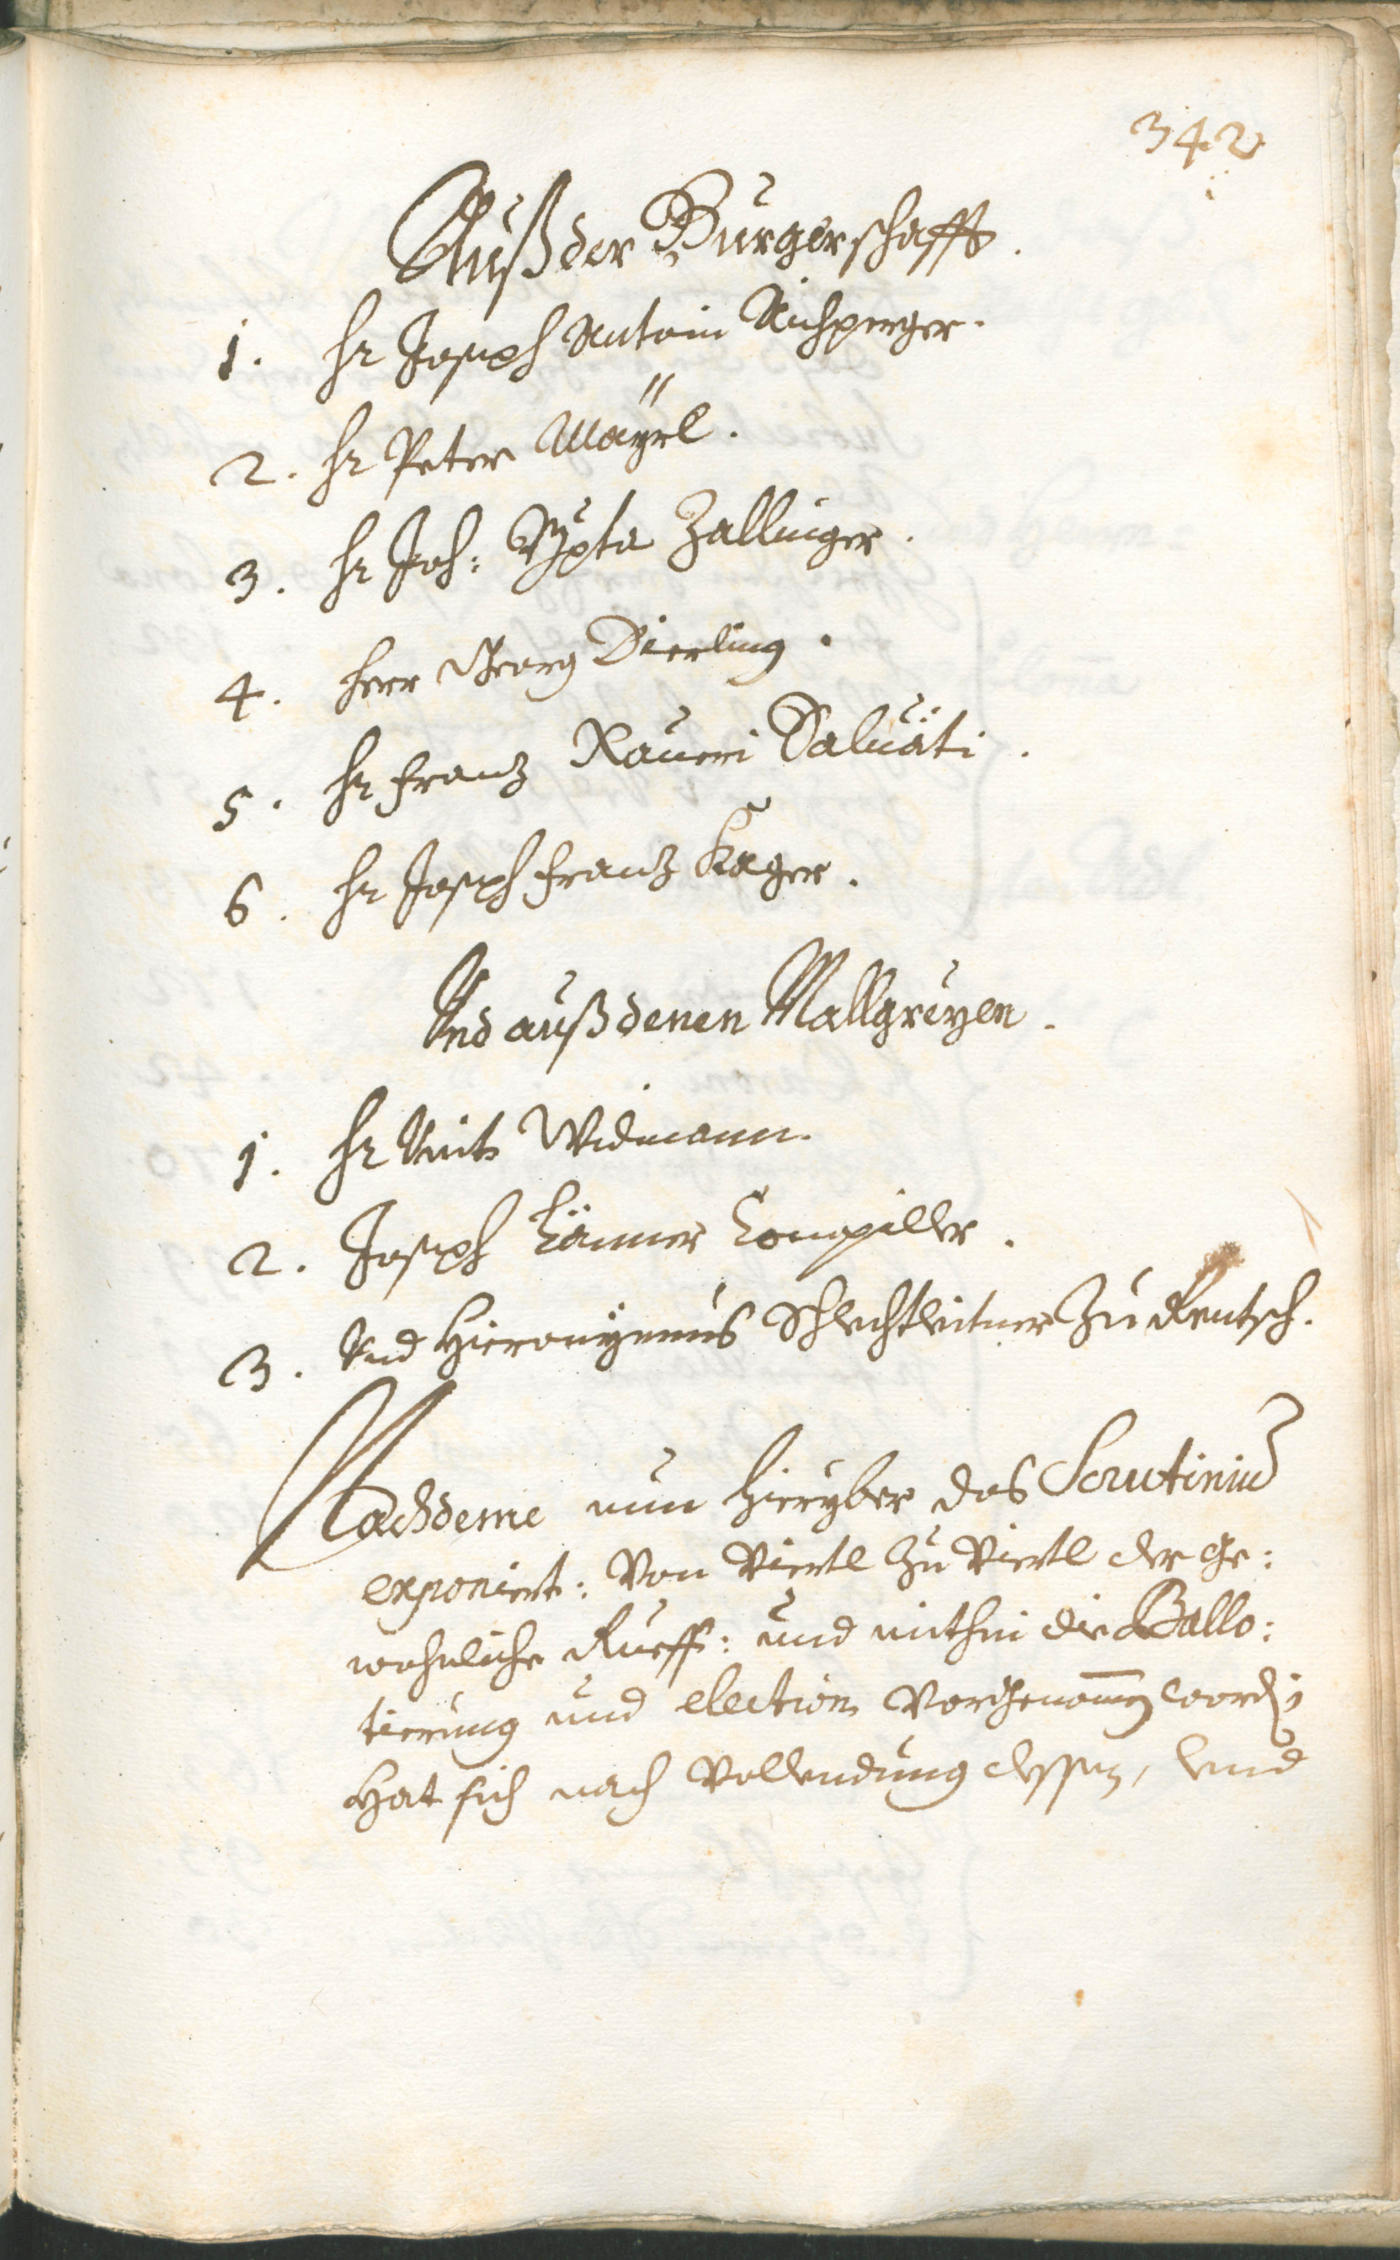 342
Auß der Burgerschafft.
1. Hr Joseph Antoni Aichperger.
2. Hr Peter Mäyrl.
3. Hr Joh: Bapta Zallinger.
4. Herr Georg Dierling.
5. Hr Franz Xaueri Saluäti.
6. Hr Joseph Franz Kager.
Vnd auß denen Mallgreyen.
1. Hr Veith Widmann.
2. Joseph Länner Compiller.
3. Vnd Hieronÿmus Schlechtleitner Zu Rentsch.
Nachdeme nun hieryber das Scrutiniu
exponiert: Von Viertl zu Viertl der ge:
wohnliche Rueff: und mithin die Ballo:
tierung und election vorgenomen worden
Hat sich nach Vollendung dessen, vnd